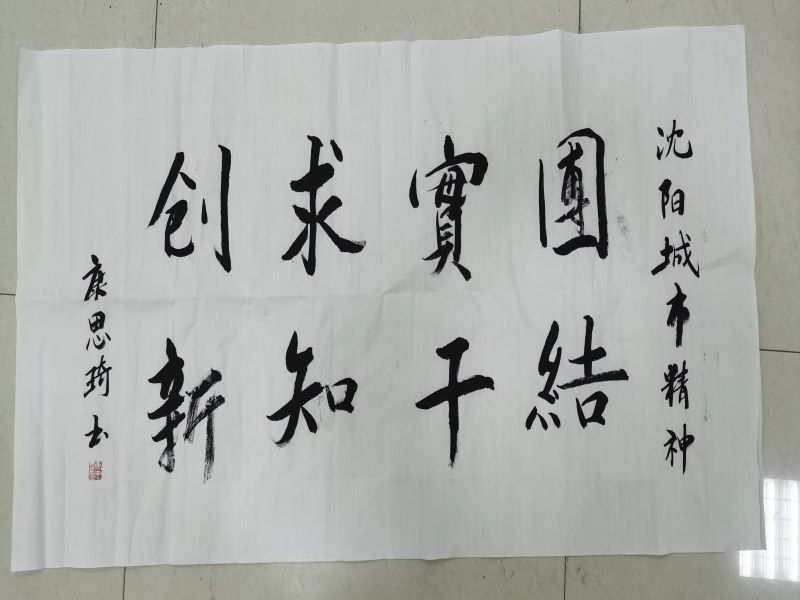 沈阳城市精神
團結
實干
求知
创新
康思琦书